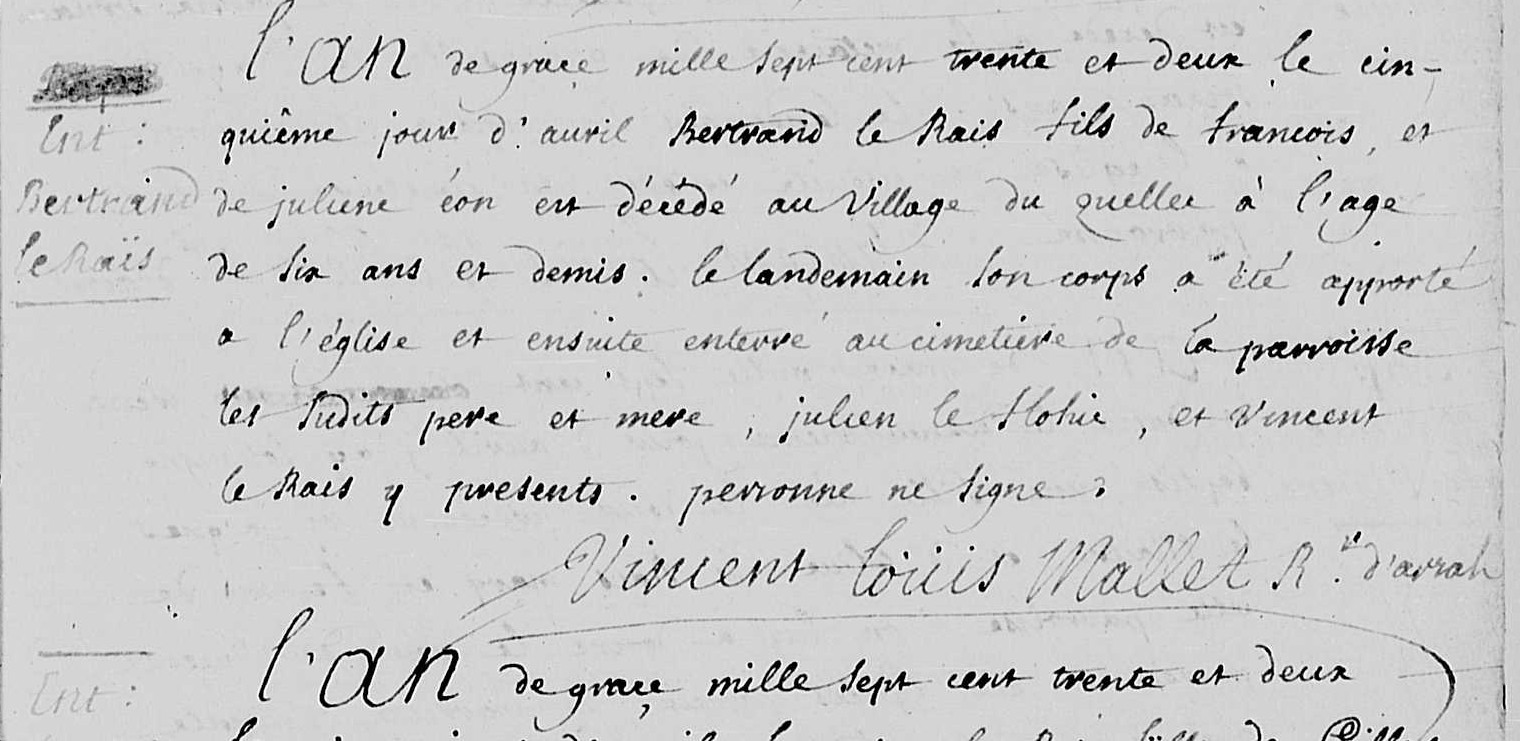 l'an de grace mille sept cent trente et deux le cin-
Ent :
quiême jour d'auril Bertrand le Rais fils de francois, et
Bertrand
de juliene éon est décédé au Village du quellec à l'age
le Raïs
de six ans et demis. le landemain son corps a été apporté
a l'église et ensuite enterré au cimetiere de la parroisse
les sudits pere et mere, julien le Flohic, et Vincent
le Rais y presents. personne ne signe.
Vincent Loüis Mallet R.r d'arzah
l'an de grace mille sept cent trente et deux
Ent :